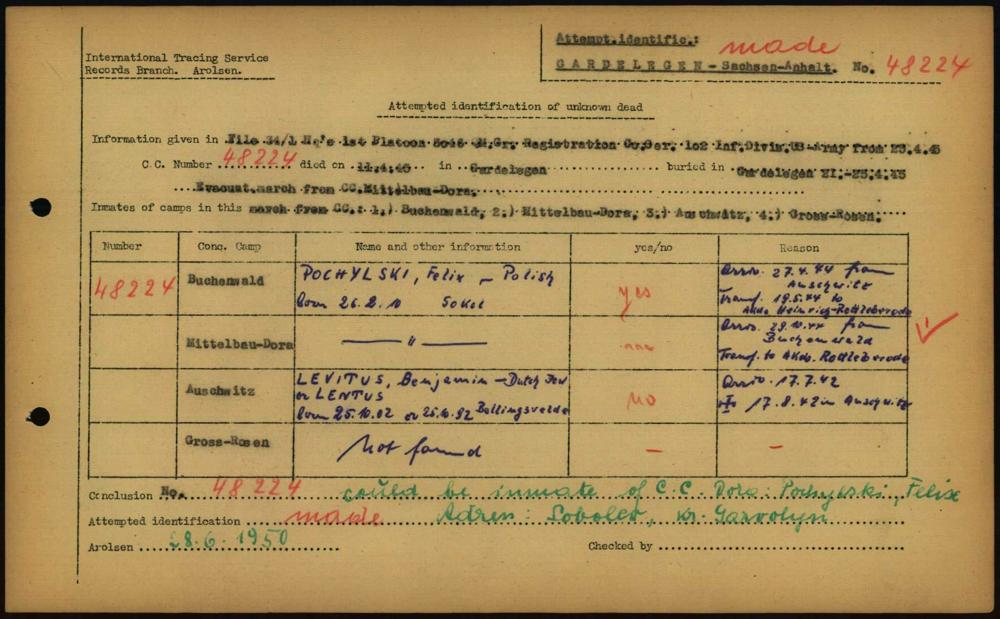 International Tracing Service
Records Branch. Arolsen.
Attempt.identific.: made
GARDELEGEN - Sachsen-Anhalt. No. 48224
Attempted identification of unknown dead
Information given in File 34/1 Hq's 1st Platoon 3046 Gr. Registration Co, 102 Inf.Divis, US-Army from 25.4.45
C.C. Number 48224 died on 11.4.45 in Gardelegen buried in Gardelegen XI.-25.4.45
Evacuat.march from CC.Mittelbau-Dora.
Inmates of camps in this march from CC.: 1.) Buchenwald, 2.) Mittelbau-Dora, 3.) Auschwitz, 4.) Gross-Rosen.
Number Conc. Camp Name and other information yes/no Reason
48224 Buchenwald POCHYLSKI, Felix - Polish yes Arriv. 27.4.44 from Auschwitz
born 26.2.10 Sokol Transf. 19.5.44 to AKdo Heinrich-Rottleberode
Mittelbau-Dora — " — Arriv. 29.10.44 from Buchenwald
Transf. to AKdo. Rottleberode
Auschwitz LEVITUS, Benjamin - Dutch Jew no Arriv. 17.7.42
or LENTUS
born 25.10.02 or 25.10.92 17.8.42 in Auschwitz
Gross-Rosen Not found - -
Conclusion No. 48224 could be inmate of C.C. Dora: Pochylski, Felix
Attempted identification made Adress: Sobolew, kr. Garwolyn
Arolsen 28.6.1950 Checked by